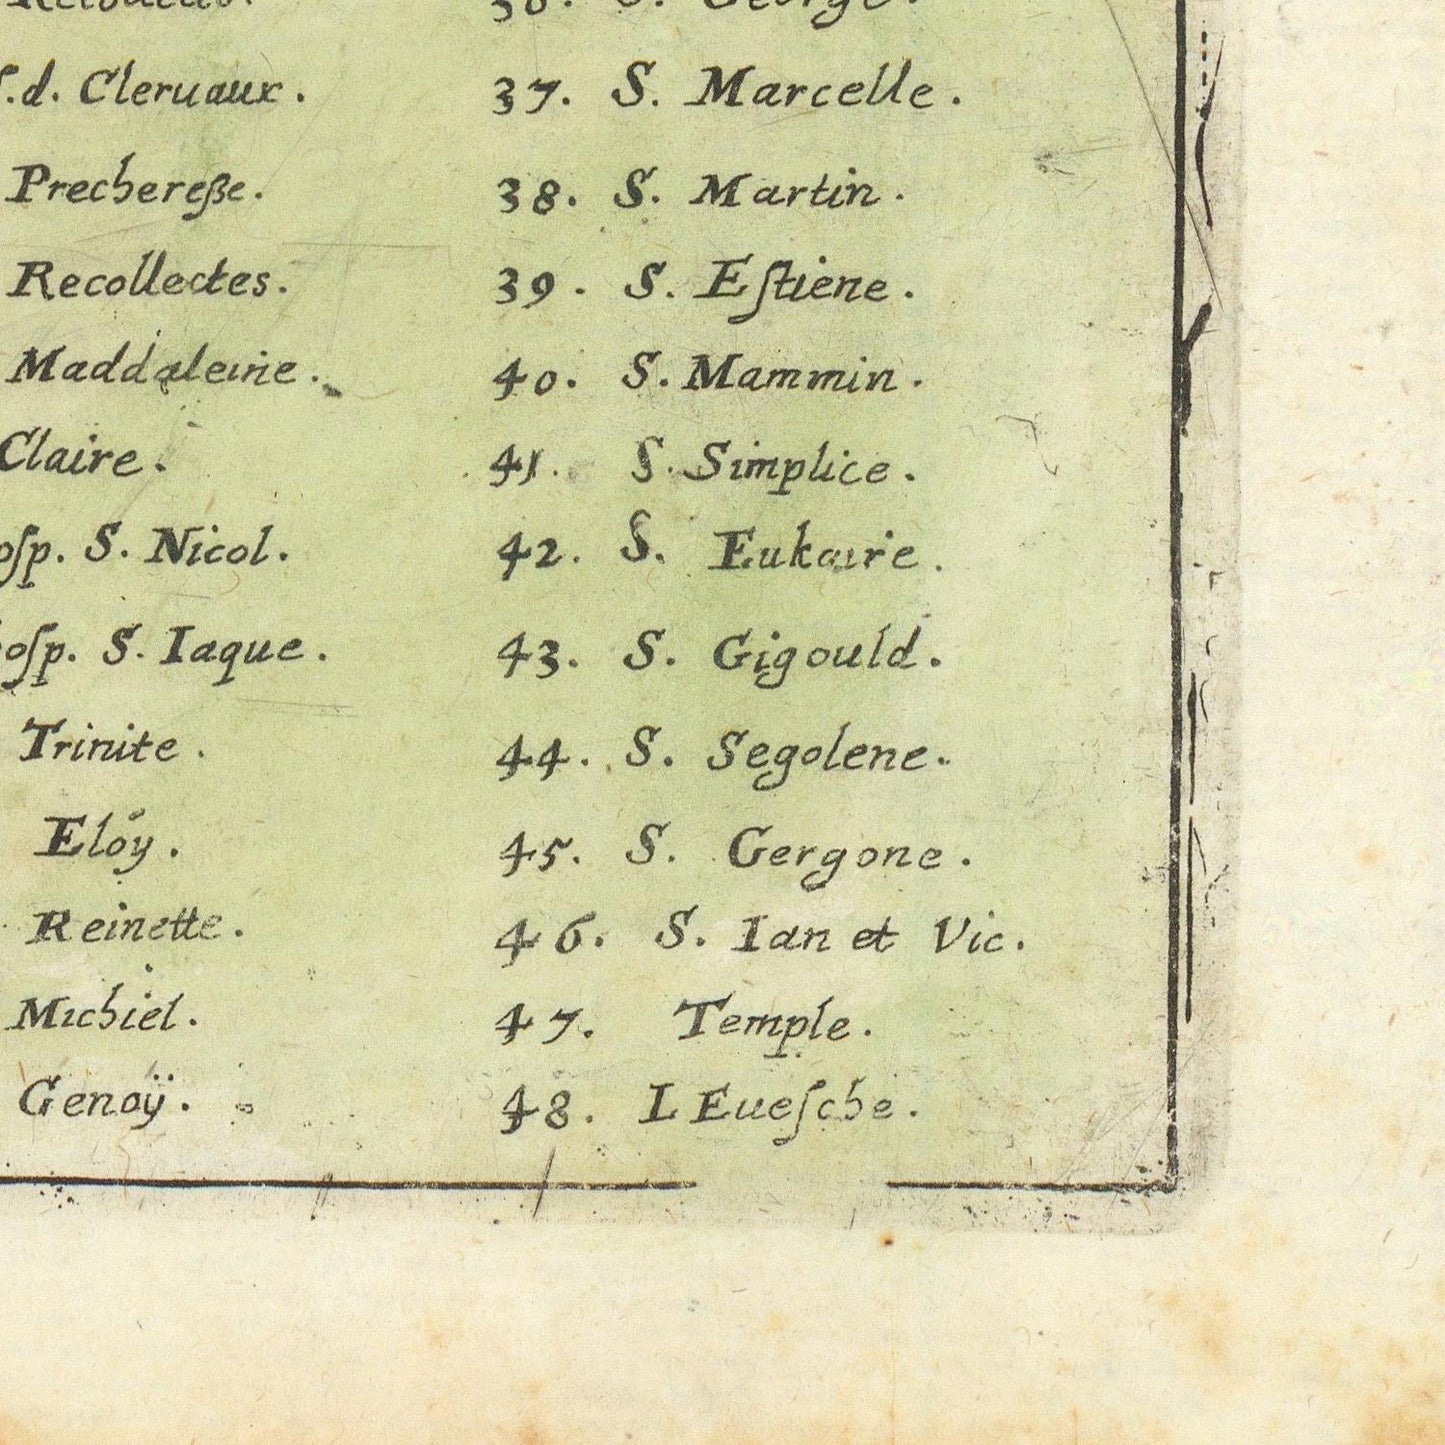 36. S. George.
ſ.d. Cleruaux. 37. S. Marcelle.
Prechereße. 38. S. Martin.
Recollectes. 39. S. Eſtiene.
Maddaleine. 40. S. Mammin.
Claire. 41. S. Simplice.
oſp. S. Nicol. 42. S. Eukaire.
oſp. S. Iaque. 43. S. Gigould.
Trinite. 44. S. Segolene.
Elóy. 45. S. Gergone.
Reinette. 46. S. Ian et Vic.
Michiel. 47. Temple.
Genoÿ. 48. L Eueſche.